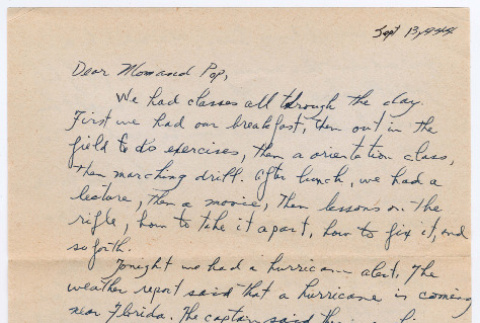 Sept 13, 1944
Dear Mom and Pop,
We had classes all through the day.
First we had our breakfast, then out in the
field to do exercises, then a orientation class,
then marching drill. After lunch, we had a
lecture, then a movie, then lessons on the
rifle, how to take it apart, how to fix it, and
so forth.
Tonight we had a hurricane alert. The
weather report said that a hurricane is coming
near Florida. The captain said